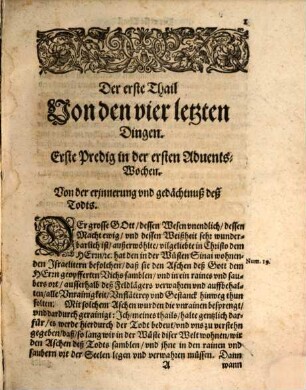 1
Der erste Thail
Von den vier letzten
Dingen.
Erste Predig in der ersten Aduents-
Wochen.
Von der erjnnerung vnd gedächtnuß deß
Todts.
DEr grosse GOtt / dessen Wesen vnendlich / dessen
Macht ewig / vnd dessen Weißheit sehr wunder-
barlich ist / außerwöhlte / vilgeliebte in Christo dem
HErrn / rc. hat den in der Wüsten Sinai wohnen-
den Israelitern befolchen / daß sie den Aschen deß Gott dem
HErrn geopfferten Viehs samblen / vnd in ein raines vnd saube-
rs ort / ausserhalb deß Feldlägers verwahren vnd auffbehal-
ten / alle Vnrainigkeit / Vnflätterey vnd Gestanck hinweg thun
solten. Mit solchem Aschen wurden die vnrainen besprengt /
vnd dardurch gerainigt: Ich / meines thails / halte gentzlich dar-
für / es werde hierdurch der Todt bedeut / vnd vns zu verstehn
gegeben / daß / so lang wir in der Wüste diser Welt wohnen / wir
den Aschen deß Todts samblen / vnd jhne in den rainen vnd
saubern ort der Seelen legen vnd verwahren müssen. Dann
Num. 19.
A
wann